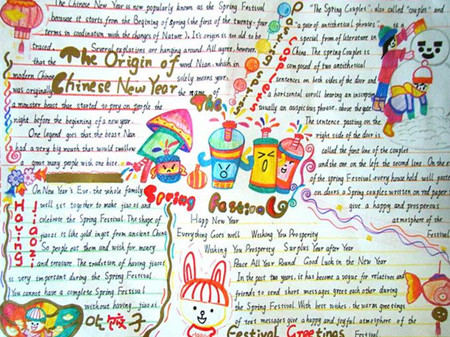 The Chinese New Year is now popularly known as the Spring Festival
because it starts from the Beginning of Spring (the first of the twenty-four
terms in coodination with the changes of Nature). Its origin is too old to be
traced. Several explanations are hanging around. All agree, however
that the word Nian, which in
modern Chinese solely means year,
was originally the name of
a monster beast that started to prey on people the
night before the beginning of a new year.
One legend goes that the beast Nian
had a very big mouth that would swallow
a great many people with one bite.
The Origin of
Chinese New Year
Paste Spring Couplets
"The Spring Couplets", also called "couplet" and
a pair of antithetical phrases", is a
special form of literature in
China. The spring couplet is
composed of two antithetical
sentences on both sides of the door and
a horizontal scroll bearing an inscription,
usually an auspicious phrase, above the gate.
The sentence pasting on the
right side of the door is
called the first line of the couplet
and the one on the left the second line. On the
of the spring Festival, every household will paste
on doors a spring couplet written on red paper
give a happy and prosperous
atmosphere of the
Festival
The
Spring Fastival
Having Jiaozi
On New Year's Eve, the whole family
will get together to make jiaozi and
celebrate the Spring Festival. The shape of
jiaozi is like gold ingot from ancient China.
So people eat them and wish for money
and treasure. The tradition of having jiaozi
is very important during the Spring Festival.
You cannot have a complete Spring Festival
without having jiaozi.
吃饺子
Happ New Year
Everything Goes well Wishing You Prosperity
Wishing You Prosperity Surplus Year after Year
Peace All Year Round Good Luck in the New Year
In the past two years, it has become a vogue for relatives and
friends to send short messages greet each other during
the Spring Festival. With best wishes, the warm greetings
of text messages give a happy and joyful atmosphere of the
Festival
Festival Greetings